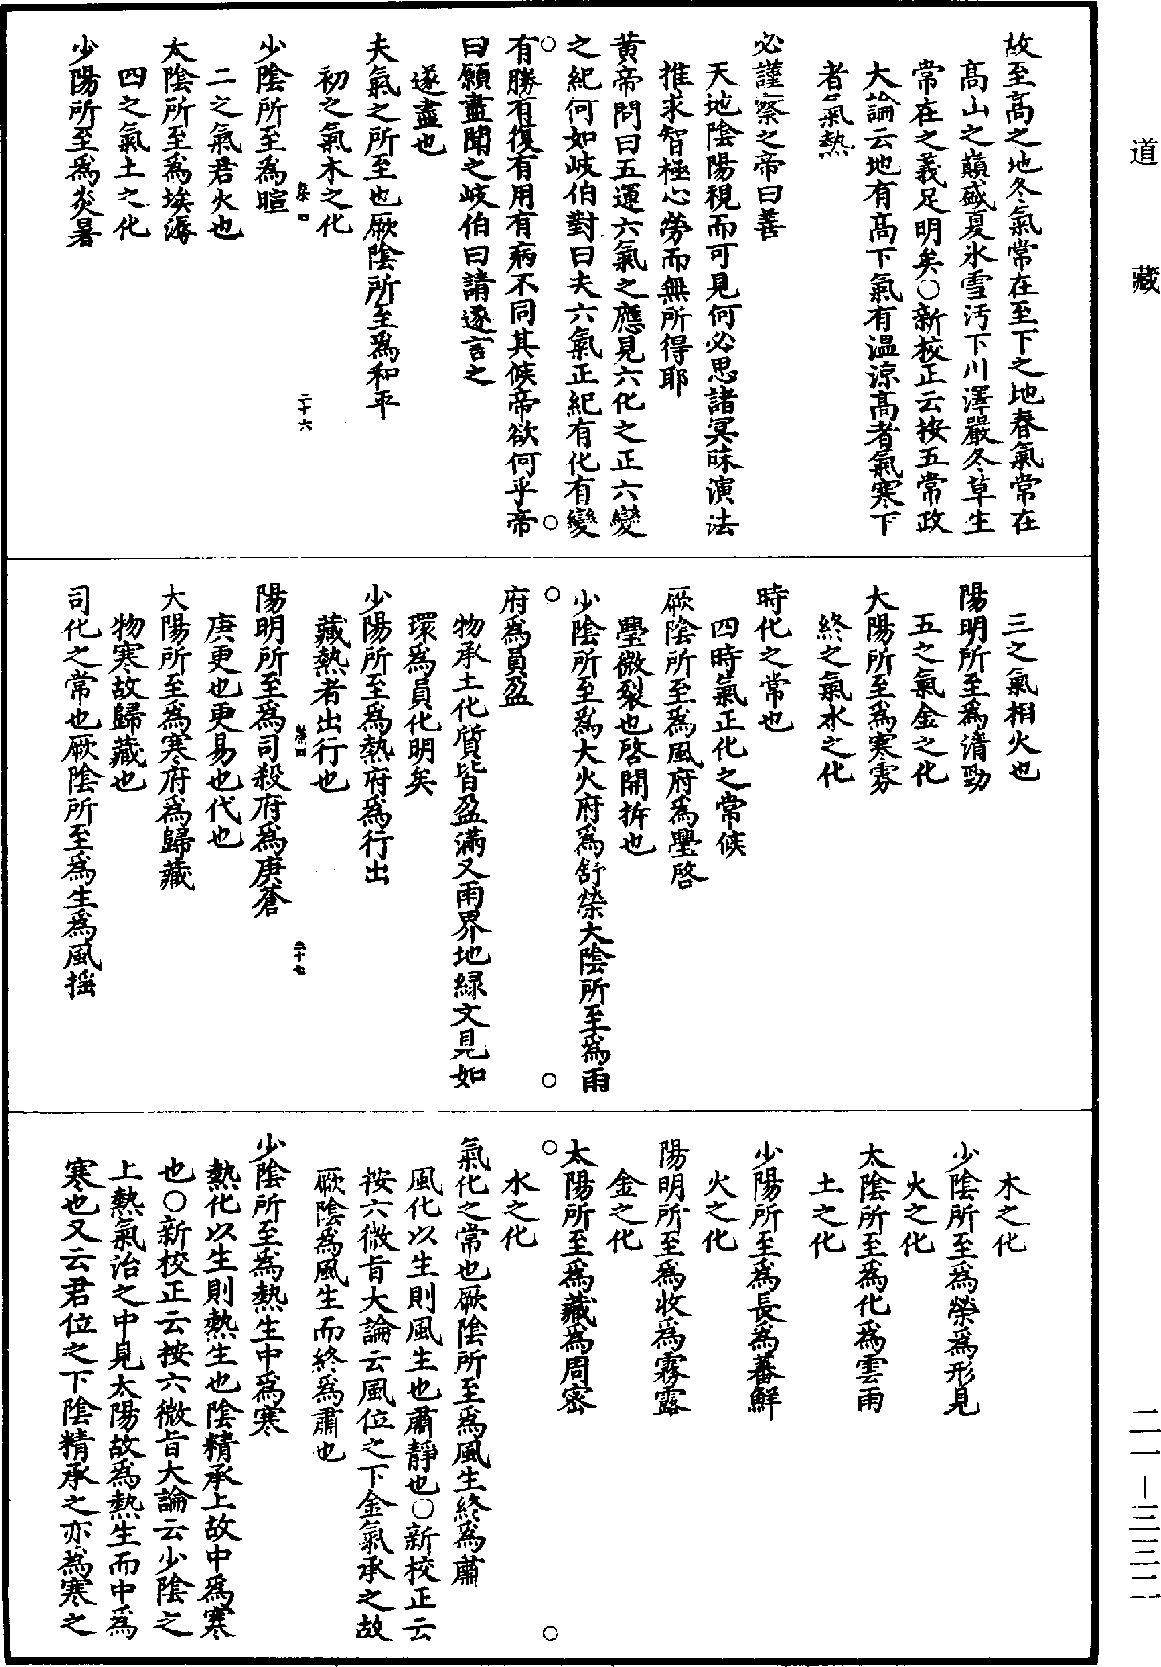 道藏
故至高之地冬氣常在至下之地春氣常在
高山之巔盛夏氷雪汚下川澤嚴冬草生
常在之義足明矣○新校正云按五常政
大論云地有高下氣有温涼高者氣寒下
者氣熱
必謹察之帝曰善
天地陰陽視而可見何必思諸冥昧演法
推求智極心勞而無所得耶
黄帝問曰五運六氣之應見六化之正六變
之紀何如岐伯對曰夫六氣正紀有化有變
有勝有復有用有病不同其候帝欲何乎帝
曰願盡聞之岐伯曰請遂言之
遂盡也
夫氣之所至也厥陰所至爲和平
初之氣木之化
二十六
少陰所至爲暄
二之氣君火也
太陰所至爲埃溽
四之氣土之化
少陽所至爲炎暑
三之氣相火也
陽明所至爲清勁
五之氣金之化
大陽所至爲寒雰
終之氣水之化
時化之常也
四時氣正化之常候
厥陰所至爲風府爲璺啓
璺微裂也啓開拆也
少陰所至爲大火府爲舒榮大陰所至爲雨
府爲員盈
物承土化質皆盈滿又雨界地緑文見如
環爲員化明矣
少陽所至爲熱府爲行出
藏熱者出行也
二十七
陽明所至爲司殺府爲庚蒼
庚更也更易也代也
大陽所至爲寒府爲歸藏
物寒故歸藏也
司化之常也厥陰所至爲生爲風摇
木之化
少陰所至爲榮爲形見
火之化
太陰所至爲化爲雲雨
土之化
少陽所至爲長爲蕃鮮
火之化
陽明所至爲收爲霧露
金之化
太陽所至爲藏爲周密
水之化
氣化之常也厥陰所至爲風生終爲肅
風化以生則風生也肅靜也○新校正云
按六微旨大論云風位之下金氣承之故
厥陰爲風生而終爲肅也
少陰所至爲熱生中爲寒
熱化以生則熱生也陰精承上故中爲寒
也○新校正云按六微旨大論云少陰之
上熱氣治之中見太陽故爲熱生而中爲
寒也又云君位之下陰精承之亦爲寒之
二一—三三二